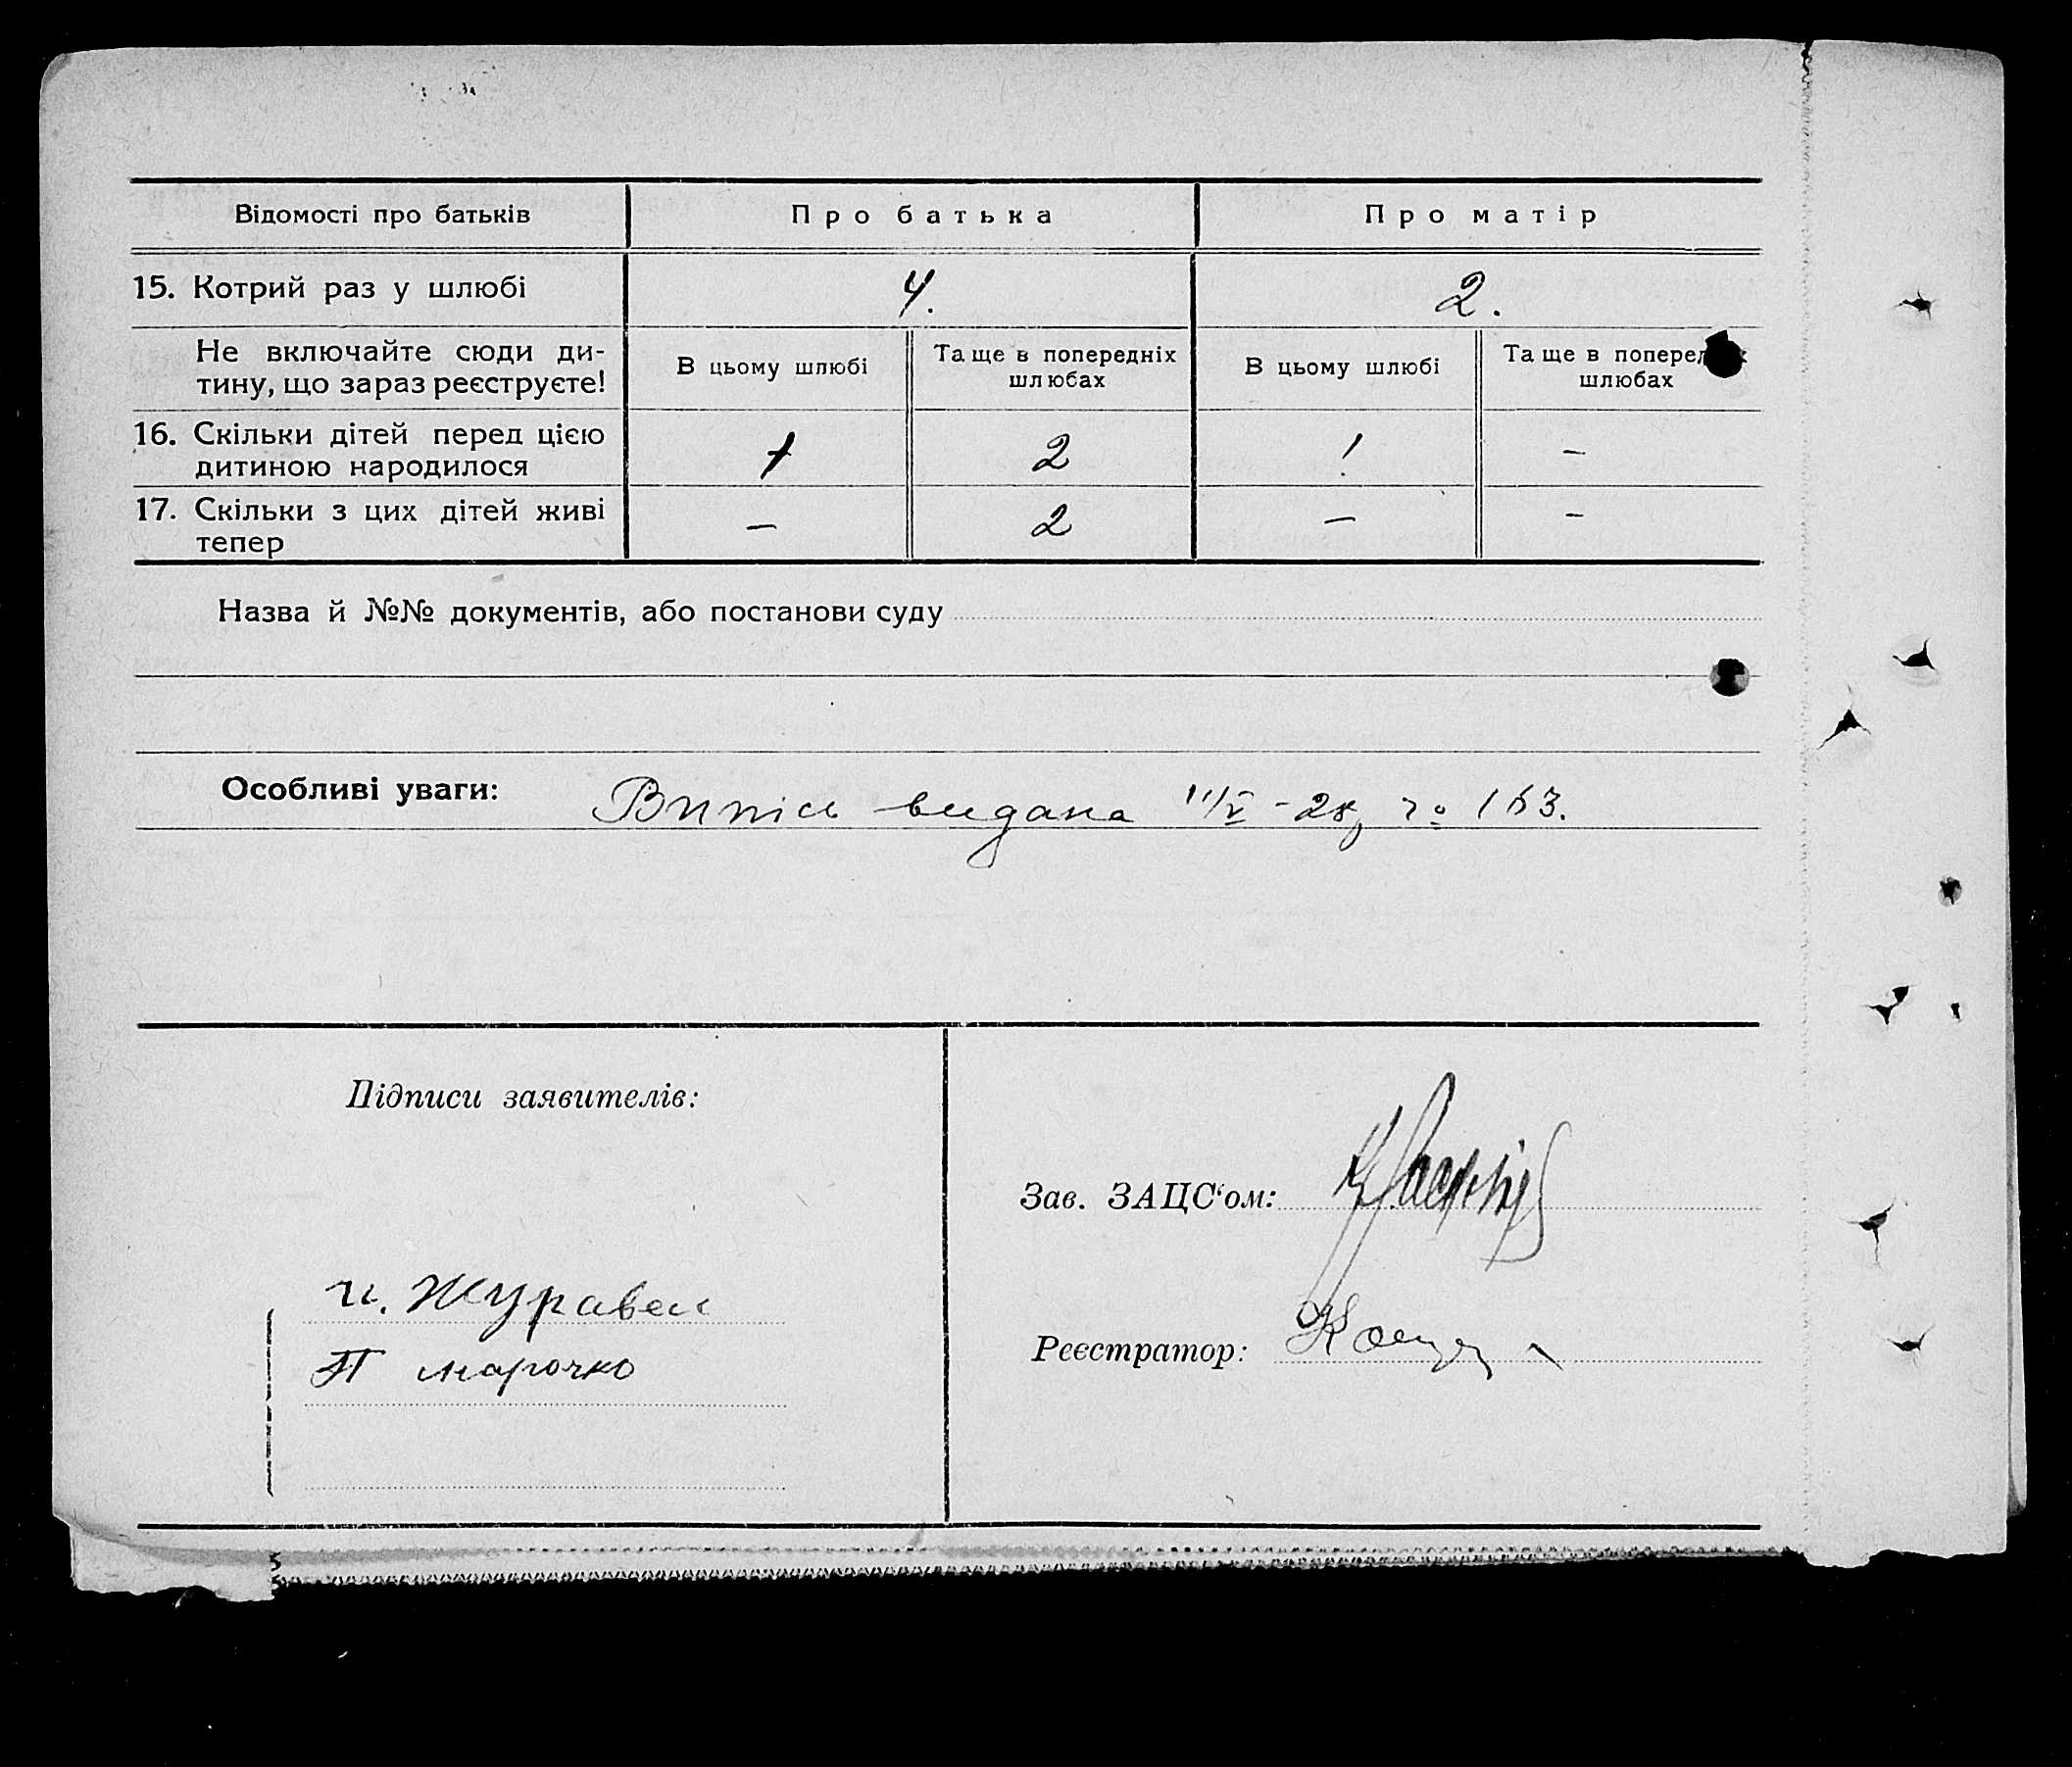 Відомості про батьків Про батька Про матір
15. Котрий раз у шлюбі 4. 2.
Не включайте сюди ди-
тину, що зараз реєструєте!
В цьому шлюбі
Та ще в попередніх
шлюбах
В цьому шлюбі
Та ще в
шлюбах
16. Скільки дітей перед цією
дитиною народилося
1 2 1 –
17. Скільки з цих дітей живі
тепер
– 2 – –
Назва й №№ документів, або постанови суду
Особливі уваги: Випись видана 11/V – 28
Підписи заявителів:
Зав. ЗАЦС‘ом:
и. Журавел
П марочко
Реєстратор: